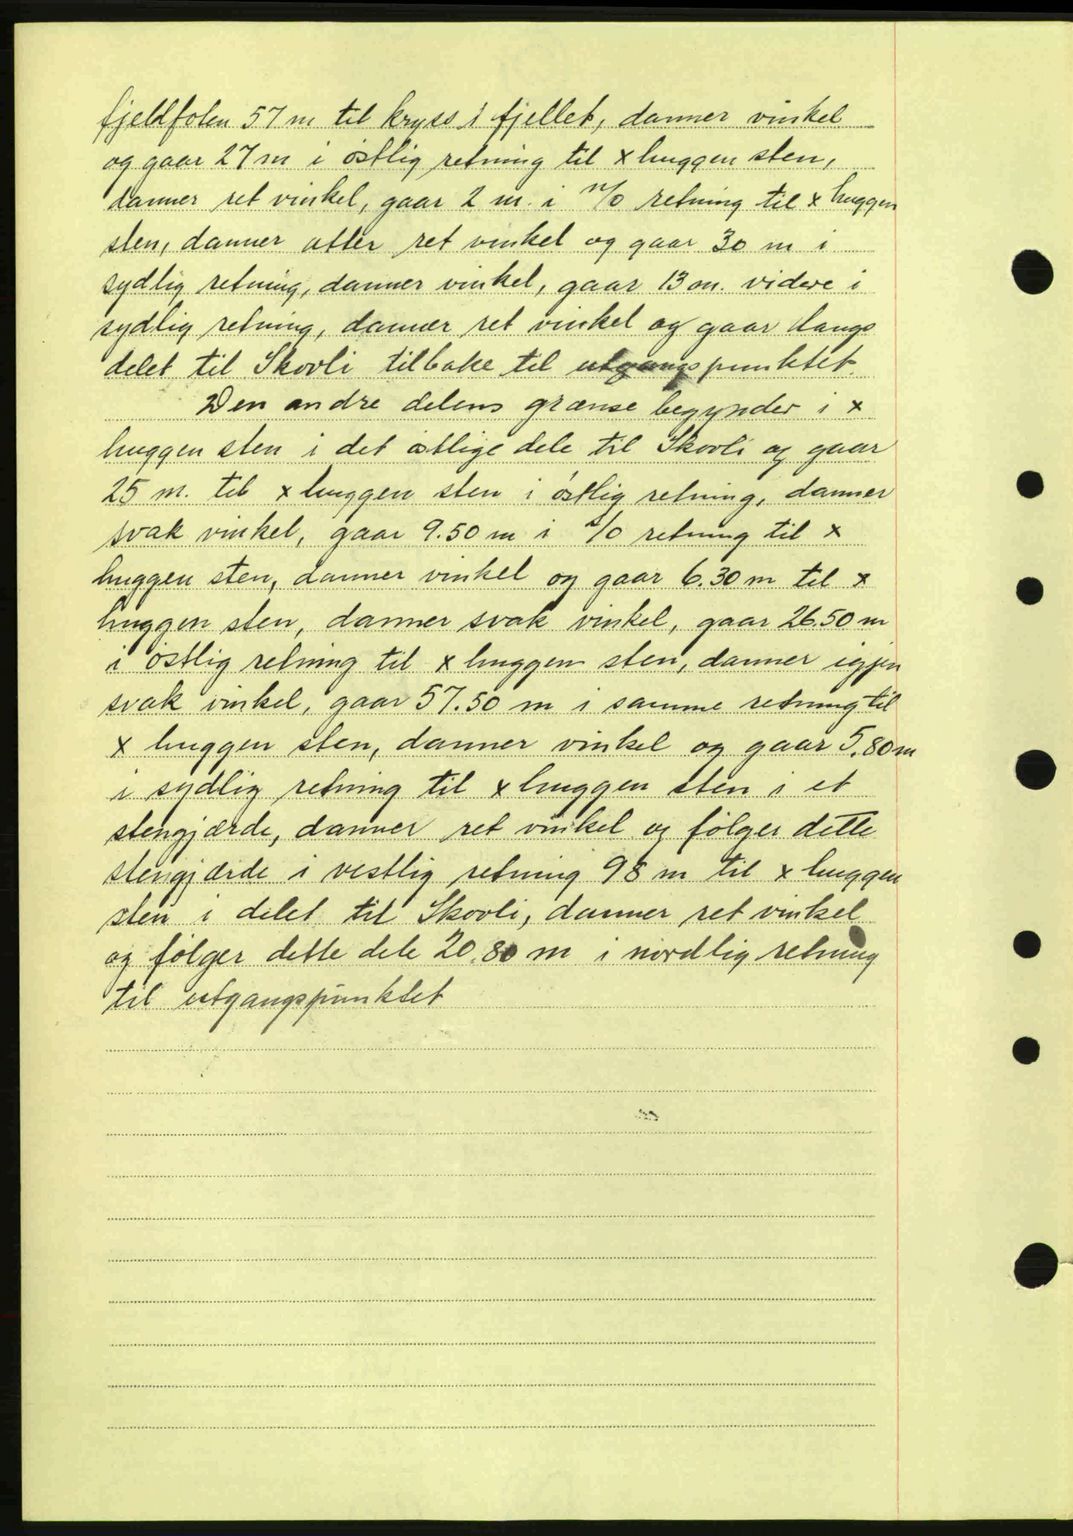 fjeldfoten 57 m til kryss i fjellet, danner vinkel
og gaar 27 m i østlig retning til x huggen sten,
danner ret vinkel, gaar 2 m i n/o retning til x huggen
sten, danner atter ret vinkel og gaar 30 m i
sydlig retning, danner vinkel, gaar 13 m. videre i
sydlig retning, danner ret vinkel og gaar langs
delet til Skovli tilbake til utgangspunktet.
Den andre delens grænse begynder i x
huggen sten i det østlige dele til Skovli og gaar
25 m. til x huggen sten i østlig retning, danner
svak vinkel, gaar 9.50 m i s/o retning til x
huggen sten, danner vinkel og gaar 6.30 m til x
huggen sten, danner svak vinkel, gaar 26.50 m
i østlig retning til x huggen sten, danner igjen
svak vinkel, gaar 57.50 m i samme retning til
x huggen sten, danner vinkel og gaar 5.80 m
i sydlig retning til x huggen sten i et
stengjærde, danner ret vinkel og følger dette
stengjærde i vestlig retning 98 m til x huggen
sten i delet til Skovli, danner ret vinkel
og følger dette dele 20.80 m i nordlig retning
til utgangspunktet